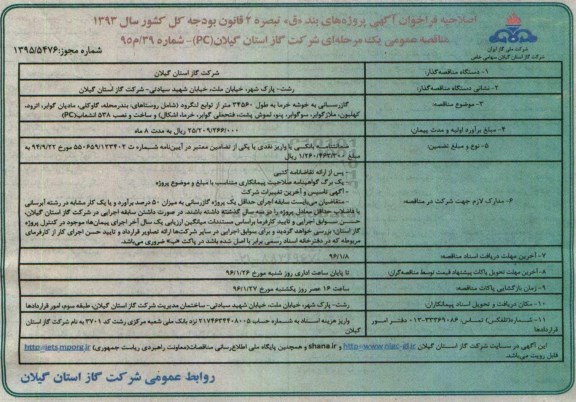 اصلاحیه فراخوان آگهی پروژه‌های بند «ق» تبصره ۲ قانون بودجه کل کشور سال ۱۳۹۳
مناقصه عمومی یک مرحله‌ای شرکت گاز استان گیلان(PC)– شماره ۳۹/م‌۹۵
شماره مجوز:۱۳۹۵/۵۴۷۶
شرکت ملی گاز ایران
شرکت گاز استان گیلان سهامی خاص
۱- دستگاه مناقصه‌گذار: شرکت گاز استان گیلان
۲- نشانی دستگاه مناقصه‌گذار: رشت- پارک شهر، خیابان ملت، خیابان شهید سیادتی- شرکت گاز استان گیلان
۳- موضوع مناقصه: گازرسانی به خوشه خرما به طول ۳۴۵۶۰ متر از توابع لنگرود (شامل روستاهای: بندرمحله، گاوکلی، مادیان گوابر، اترود،
کهلبون، ملاژ گوابر، سوگوابر، ویو، لموش پشت، فتحعلی گوابر، خرما، اشکال) و ساخت و نصب ۵۳۸ انشعاب(PC)
۴- مبلغ برآورد اولیه و مدت پیمان: ۲۵/۲۰۹/۲۶۶/۰۰۰ ریال به مدت ۸ ماه
۵- نوع و مبلغ تضمین: ضمانتنامه بانکی یا واریز نقدی یا یکی از تضامین معتبر در آیین‌نامه شماره ت ۵۵۰۶۵۹/۱۲۳۴۰۲ مورخ ۹۴/۹/۲۲ به
مبلغ ۱/۲۶۰/۴۶۳/۳۰۰ ریال
۶- مدارک لازم جهت شرکت در مناقصه:
- پس از ارائه تقاضانامه کتبی
- یک برگ گواهینامه صلاحیت پیمانکاری متناسب با مبلغ و موضوع پروژه
- آگهی تاسیس و آخرین تغییرات شرکت
- متقاضیان می‌بایست سابقه اجرای حداقل یک پروژه گازرسانی به میزان ۵۰ درصد برآورد و یا یک کار مشابه در رشته آبرسانی
یا فاضلاب حداقل معادل پروژه را در پنج سال گذشته داشته باشند. در صورت داشتن سابقه اجرایی در شرکت گاز استان گیلان،
حسن سوابق اجرایی و تایید کارفرما براساس مستندات میانگین ارزیابی یک سال آخر اجرای پیمان‌ها، موجود در کنترل پروژه
گاز استان؛ بررسی خواهد گردید و برای سوابق اجرایی در سایر شرکت‌ها ارائه تصاویر قرارداد و تایید حسن اجرای کار از کارفرمای
مربوطه که در دفترخانه اسناد رسمی برابر با اصل شده باشد در پاکت «ب» ضروری می‌باشد.
۷- آخرین مهلت دریافت اسناد مناقصه: ۹۶/۱/۸
۸- آخرین مهلت تحویل پاکات پیشنهاد قیمت توسط مناقصه‌گران: تا پایان ساعت اداری روز شنبه مورخ ۹۶/۱/۲۶
۹- زمان بازگشایی پاکات مناقصه: ساعت ۱۶ عصر روز یکشنبه مورخ ۹۶/۱/۲۷
۱۰- مکان دریافت و تحویل اسناد پیمانکاران: رشت- پارک شهر، خیابان ملت، خیابان شهید سیادتی- ساختمان مدیریت شرکت گاز استان گیلان، طبقه سوم، امور قراردادها
۱۱- شماره(تلفکس) تماس: ۳۳۳۶۹۰۸۶-۰۱۳ دفتر امور قراردادها
واریز هزینه اسناد به شماره حساب ۲۱۷۴۶۳۴۴۰۸۰۰۵ نزد بانک ملی شعبه مرکزی رشت کد ۳۷۰۱ به نام شرکت گاز استان
گیلان
این آگهی در سایت شرکت گاز استان گیلان http://www.nigc-gl.ir و shana.ir و همچنین پایگاه ملی اطلاع‌رسانی مناقصات(معاونت راهبردی ریاست جمهوری) http://iets-mporg.ir
قابل رویت می‌باشد.
روابط عمومی شرکت گاز استان گیلان